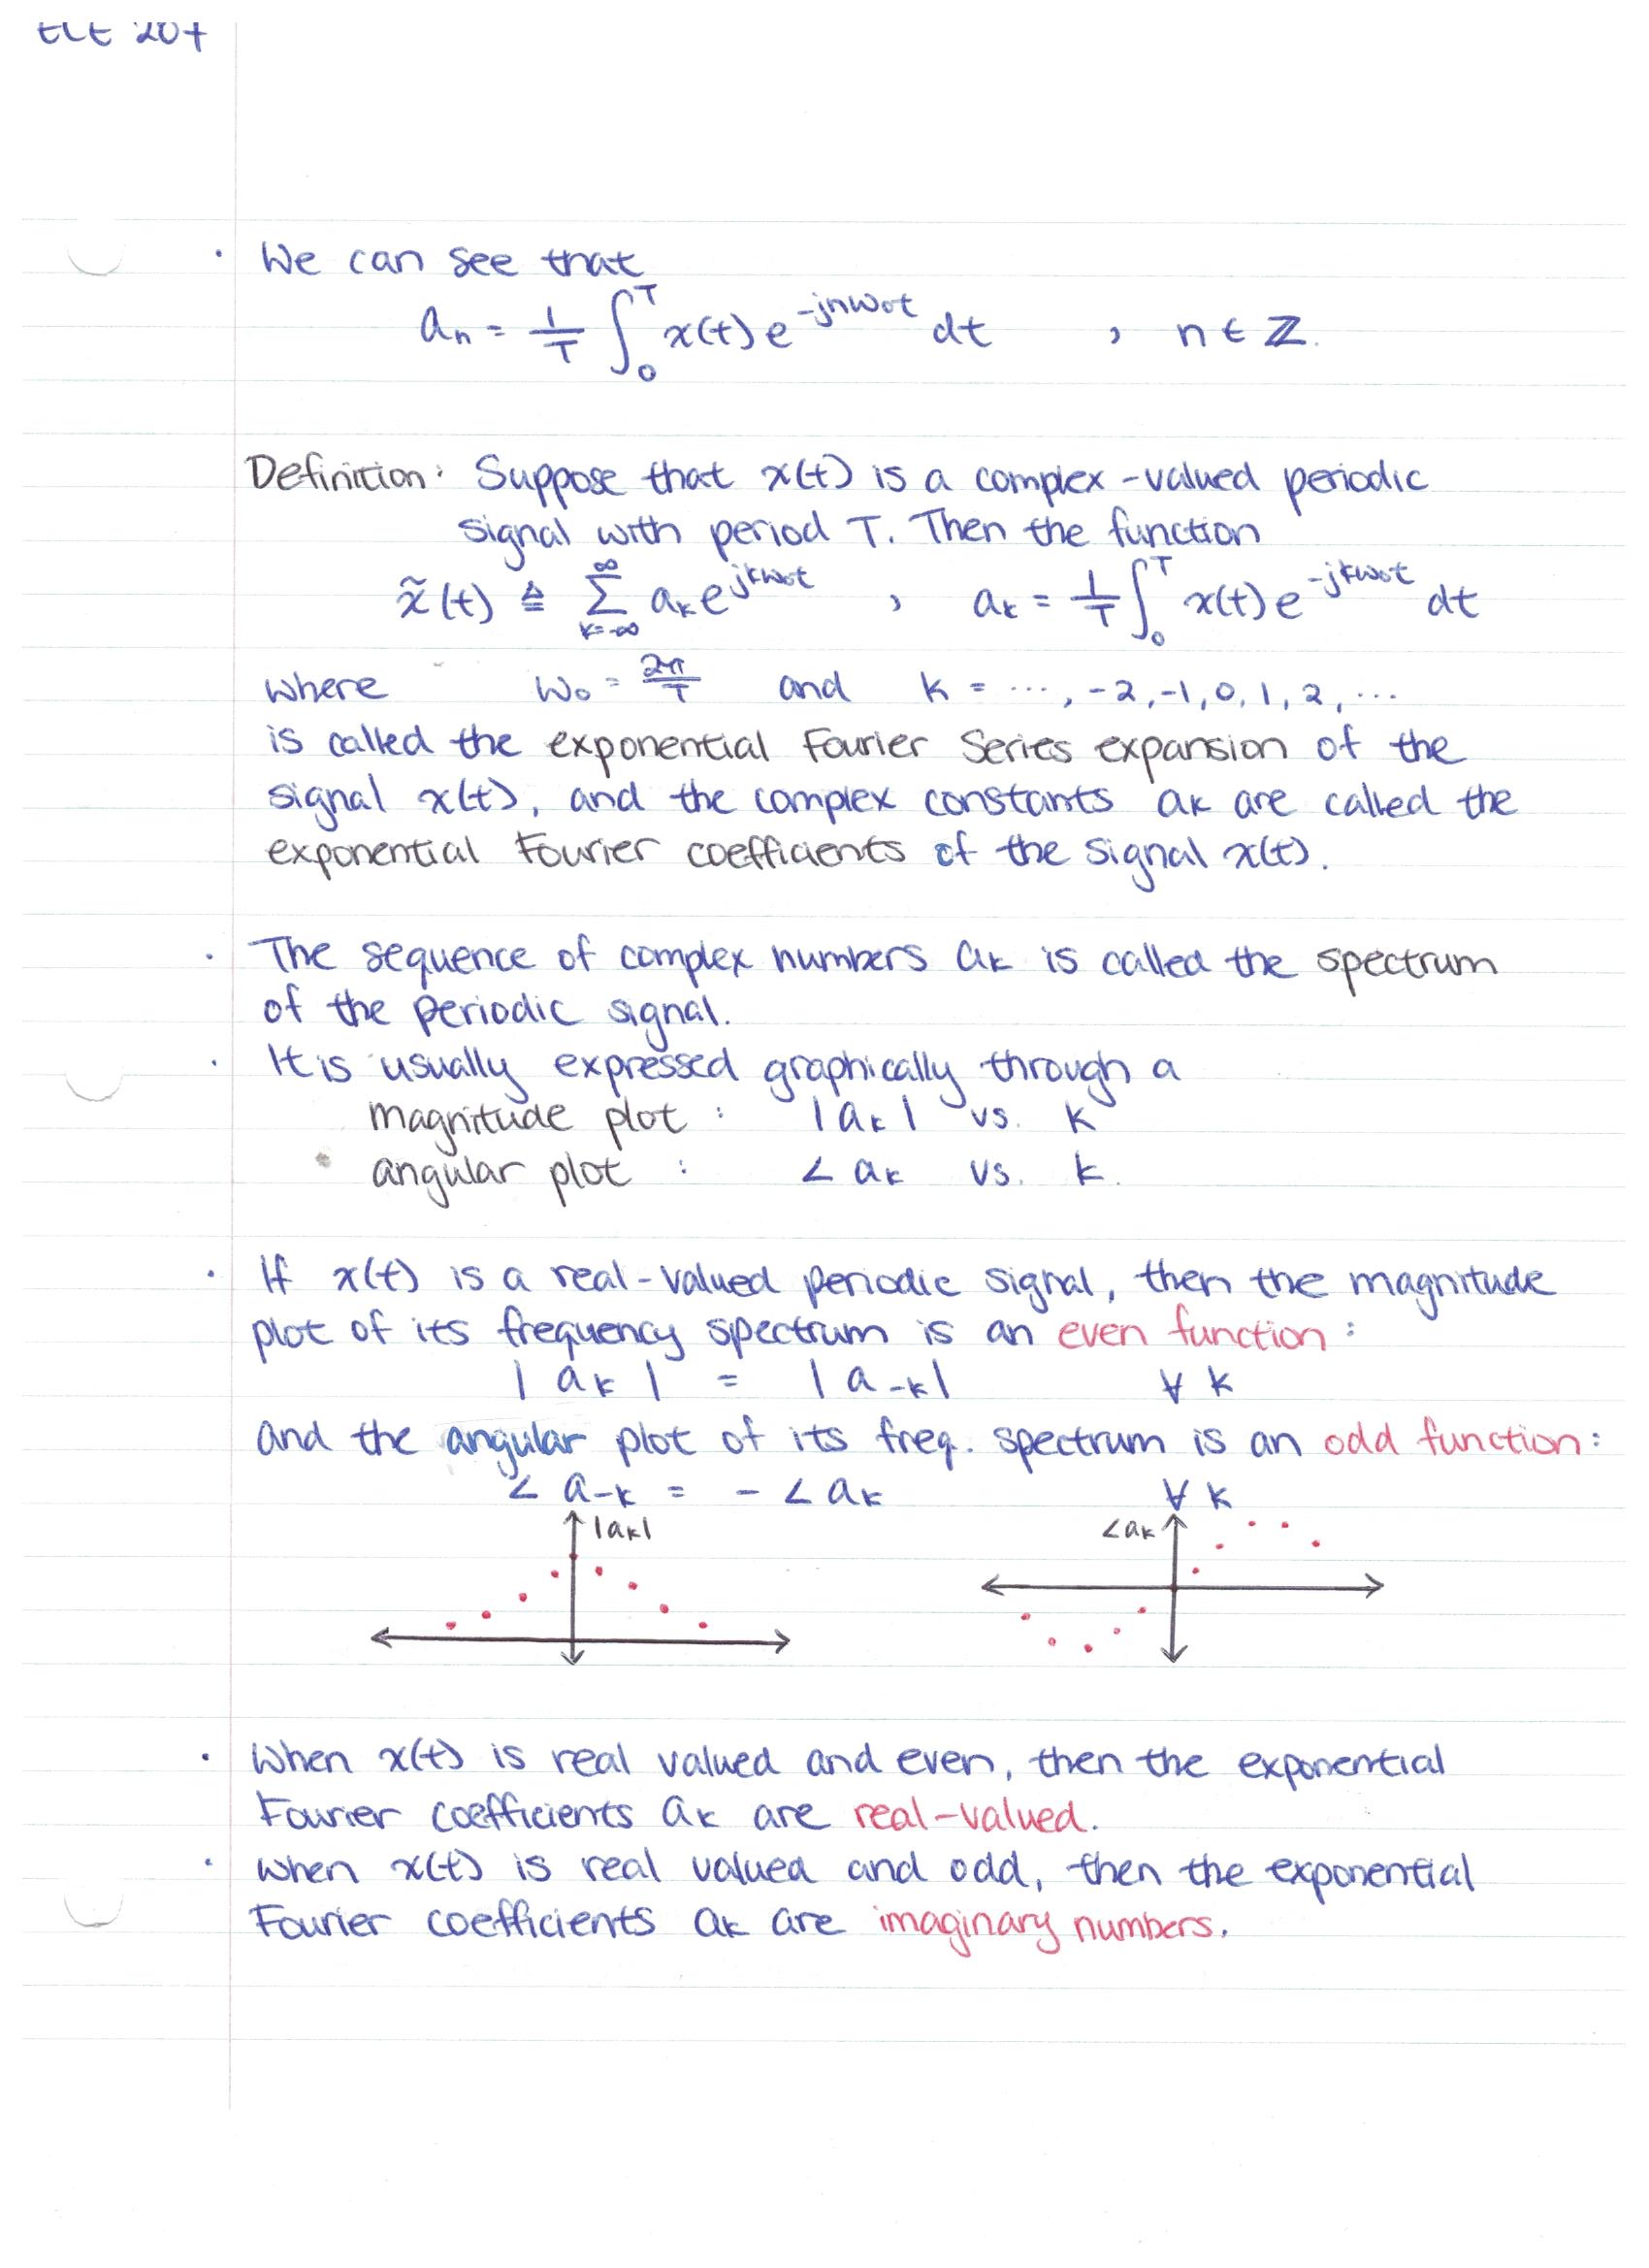 ECE 207
· We can see that
aₙ = 1/T ∫₀ᵀ x(t) e^(-jnω₀t) dt , n ∈ ℤ.
Definition: Suppose that x(t) is a complex-valued periodic
signal with period T. Then the function
x̃(t) ≜ Σ_(k=-∞)^∞ aₖ e^(jkω₀t) , aₖ = 1/T ∫₀ᵀ x(t) e^(-jkω₀t) dt
where ω₀ = 2π/T and k = ..., -2, -1, 0, 1, 2, ...
is called the exponential Fourier Series expansion of the
signal x(t), and the complex constants aₖ are called the
exponential Fourier coefficients of the signal x(t).
· The sequence of complex numbers aₖ is called the spectrum
of the periodic signal.
· It is usually expressed graphically through a
magnitude plot : |aₖ| vs. k
angular plot : ∠aₖ vs. k.
· If x(t) is a real-valued periodic signal, then the magnitude
plot of its frequency spectrum is an even function:
|aₖ| = |a₋ₖ| ∀ k
and the angular plot of its freq. spectrum is an odd function:
∠a₋ₖ = -∠aₖ ∀ k
|aₖ| ∠aₖ
· When x(t) is real valued and even, then the exponential
Fourier coefficients aₖ are real-valued.
· When x(t) is real valued and odd, then the exponential
Fourier coefficients aₖ are imaginary numbers.